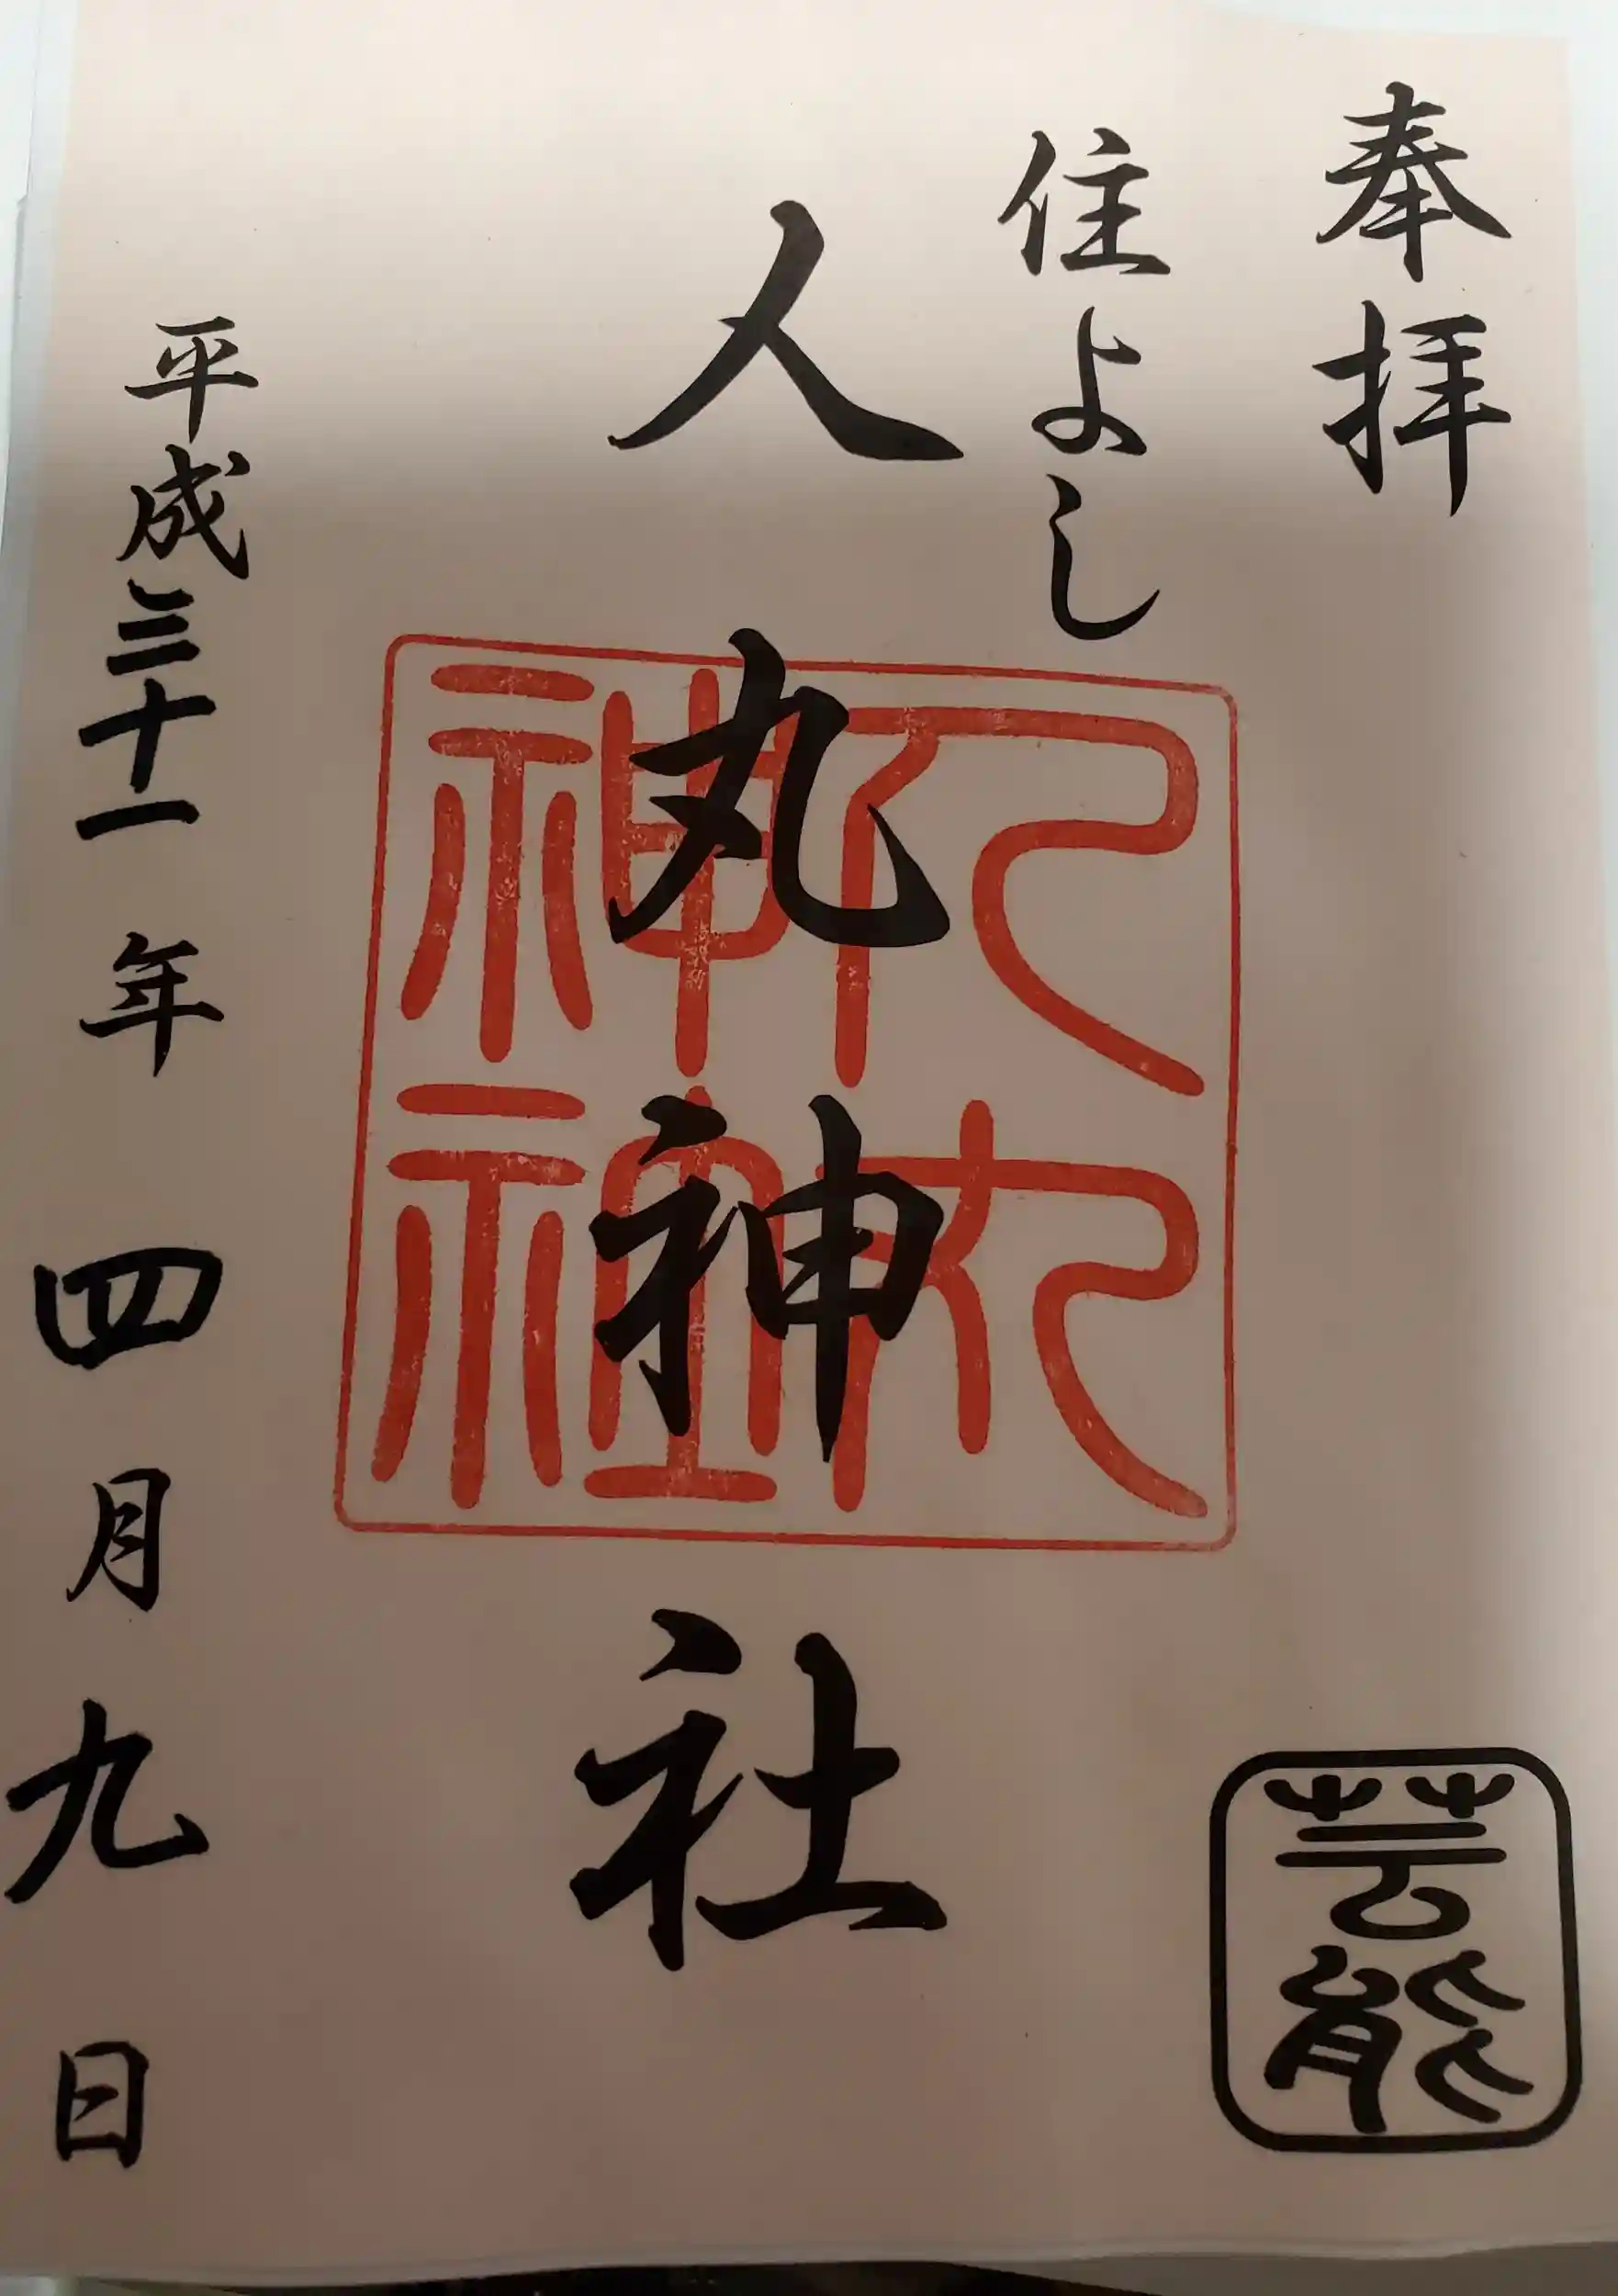 奉拝
住よし
人丸神社
人丸神社
芸能
平成三十一年四月九日